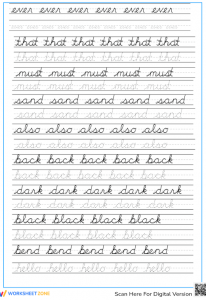 even even even even even
even even even even even
that that that that that that
that that that that that that
must must must must must
must must must must must
sand sand sand sand sand
sand sand sand sand sand
also also also also also
also also also also also
back back back back back
back back back back back
dark dark dark dark dark
dark dark dark dark dark
black black black black
black black black black
bend bend bend bend bend
hello hello hello hello hello
WORKSHEETZONE
Scan Here For Digital Version